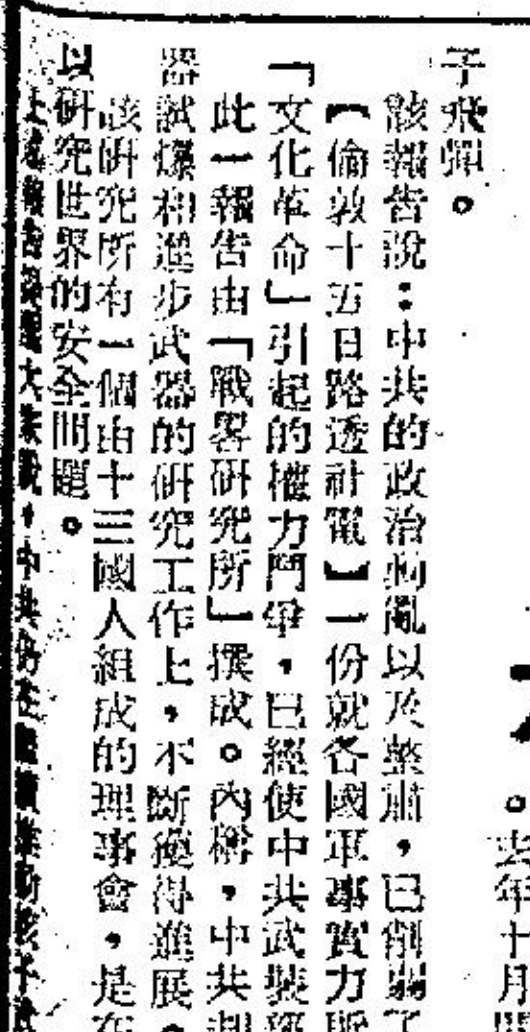 。去年十月
子飛彈。
該報告說：中共的政治動亂以及整肅，已削弱了
【倫敦十五日路透社電】一份就各國軍事實力
「文化革命」引起的權力鬥爭，已經使中共武裝
此一報告由「戰畧研究所」撰成。內稱，中共
器試爆和進步武器的研究工作上，不斷獲得進展。
該研究所有一個由十三國人組成的理事會，是在
以研究世界的安全問題。
上述報告 大 說，中共仍在繼續推動核子